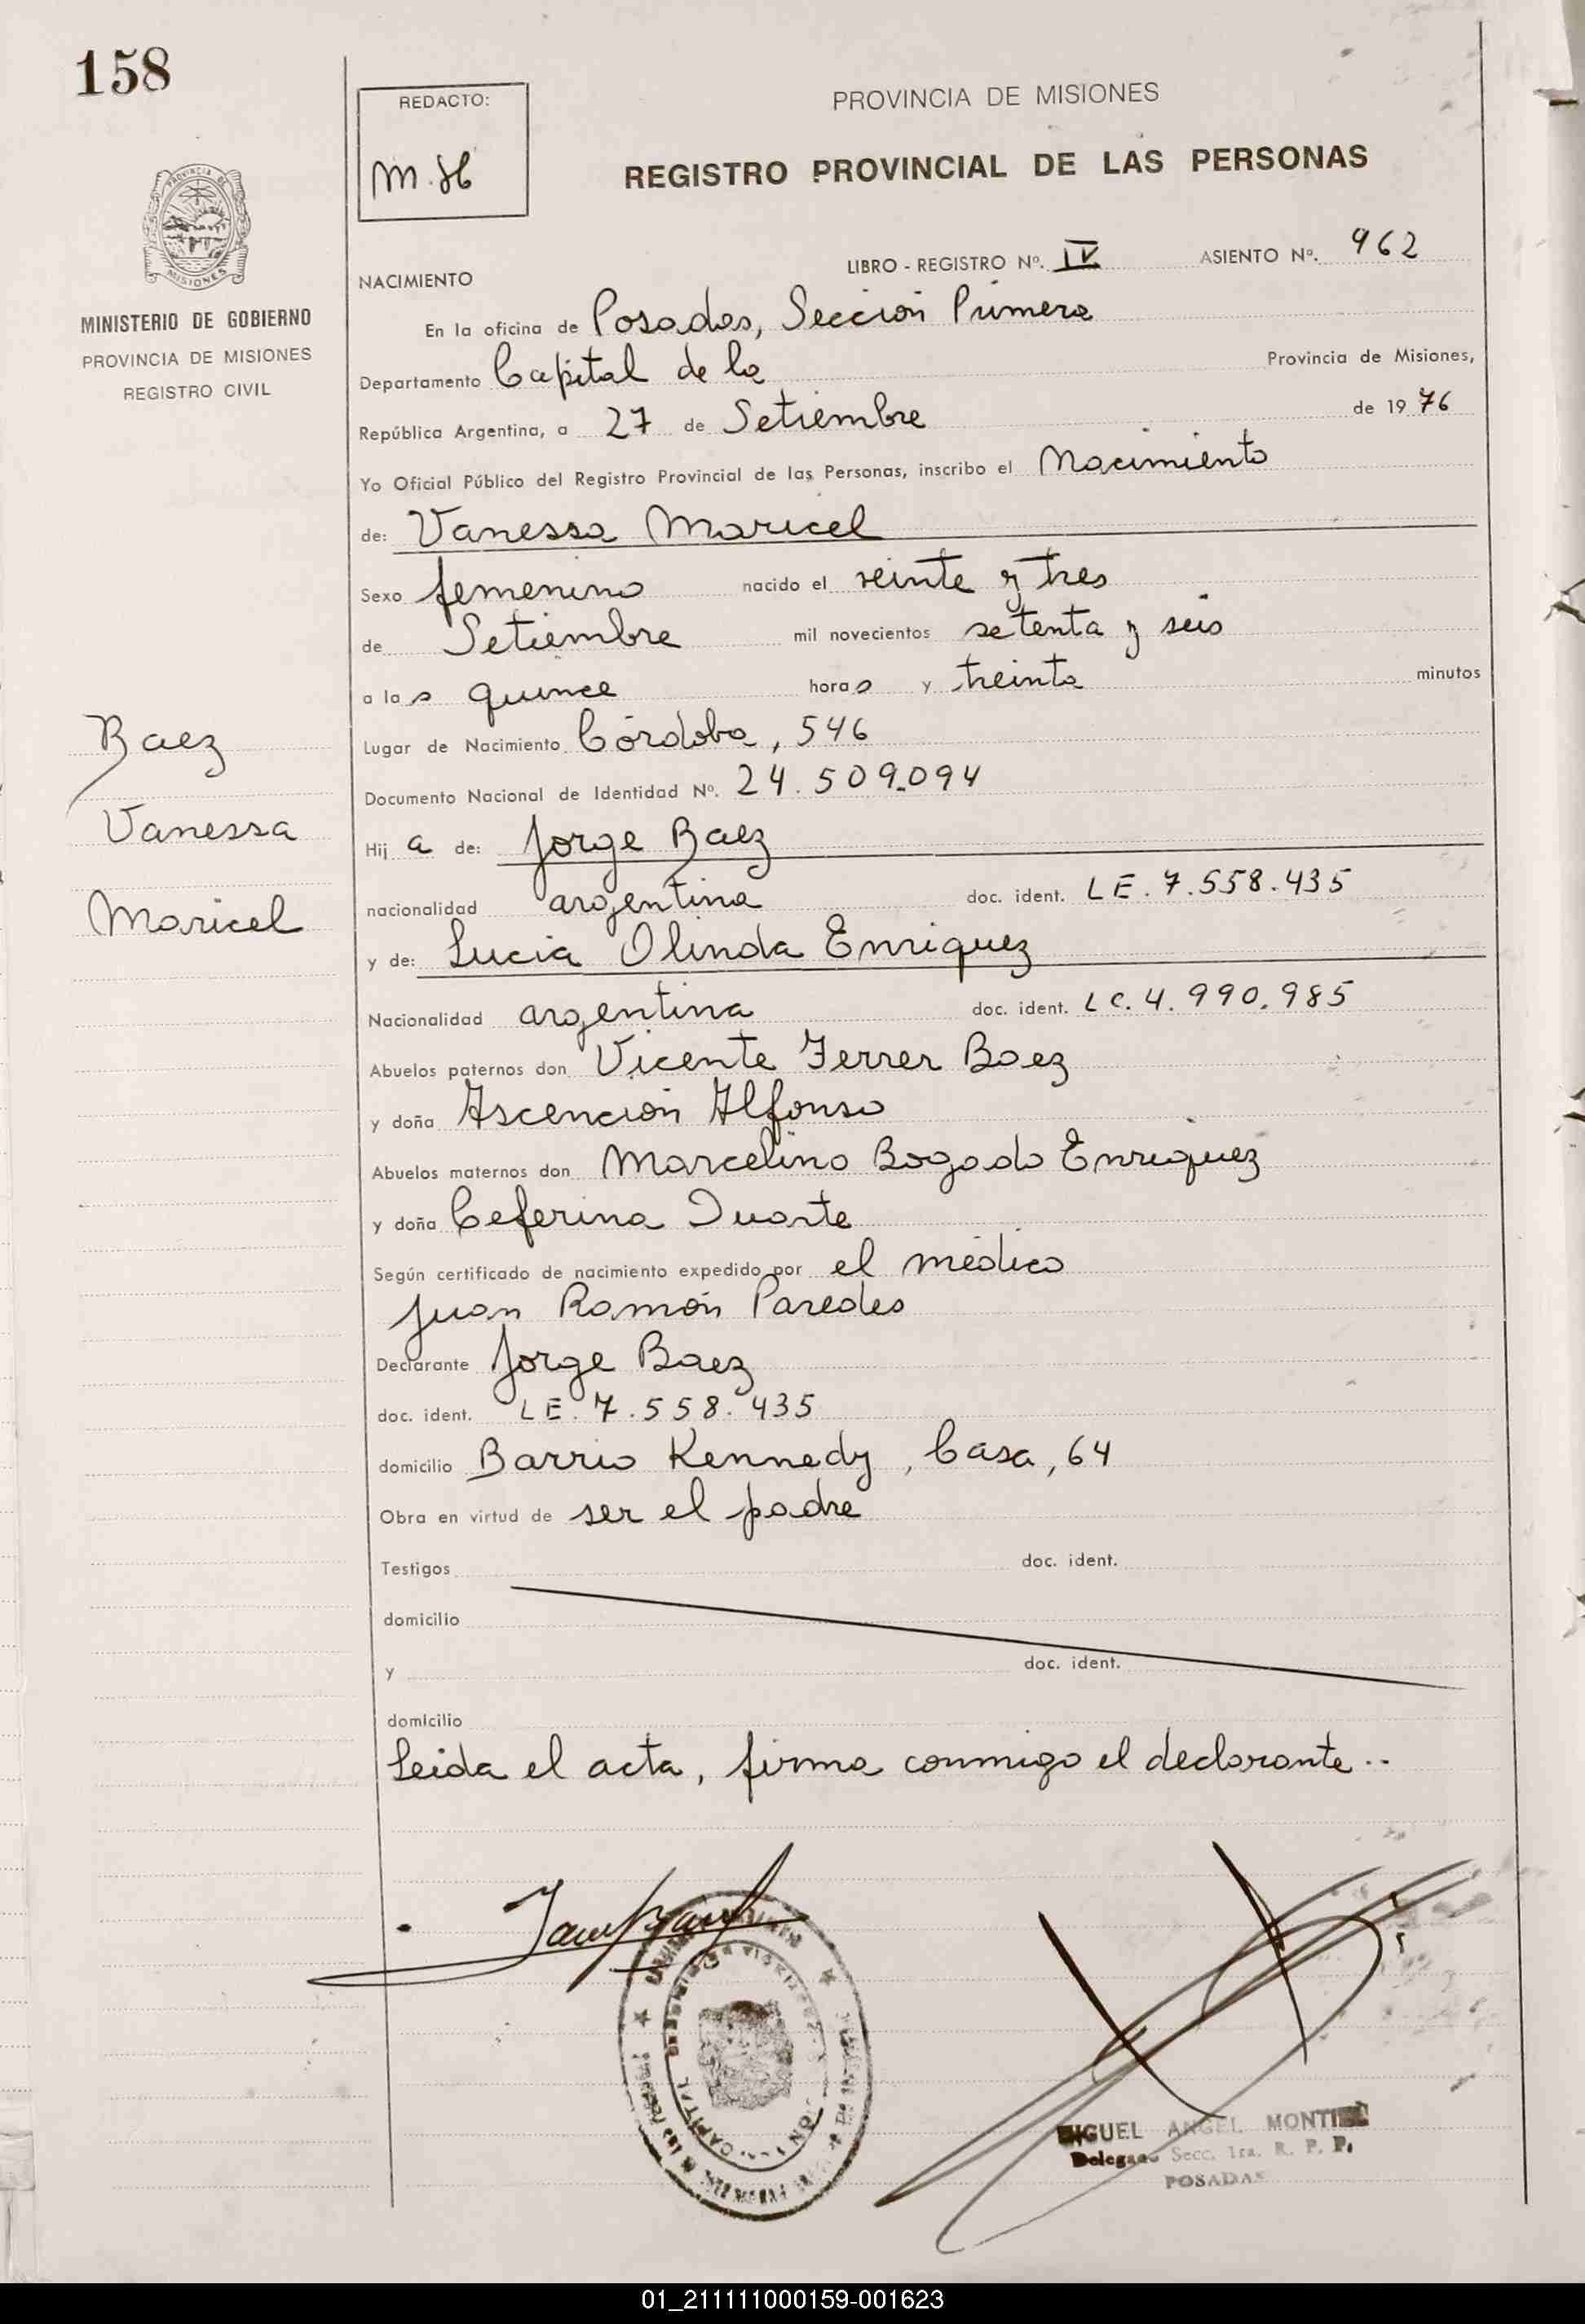 158
REDACTO:
M.H
PROVINCIA DE MISIONES
REGISTRO PROVINCIAL DE LAS PERSONAS
PROVINCIA DE
MISIONES
MINISTERIO DE GOBIERNO
PROVINCIA DE MISIONES
REGISTRO CIVIL
LIBRO - REGISTRO Nº. IV ASIENTO Nº. 962
NACIMIENTO
En la oficina de Posadas, Sección Primera
Departamento Capital de la Provincia de Misiones,
República Argentina, a 27 de Setiembre de 1976
Yo Oficial Público del Registro Provincial de las Personas, inscribo el Nacimiento
de: Vanessa Maricel
Sexo femenino nacido el veinte y tres
de Setiembre mil novecientos setenta y seis
a las quince horas y treinta minutos
Lugar de Nacimiento Córdoba, 546
Documento Nacional de Identidad Nº. 24.509.094
Hija de: Jorge Baez
nacionalidad argentina doc. ident. LE. 7.558.435
y de: Lucia Olinda Enriquez
Nacionalidad argentina doc. ident. LC. 4.990.985
Abuelos paternos don Vicente Ferrer Baez
y doña Ascención Alfonso
Abuelos maternos don Marcelino Bogado Enriquez
y doña Ceferina Duarte
Según certificado de nacimiento expedido por el médico
Juan Ramón Paredes
Declarante Jorge Baez
doc. ident. LE. 7.558.435
domicilio Barrio Kennedy, Casa, 64
Obra en virtud de ser el padre
Testigos doc. ident.
domicilio
y doc. ident.
domicilio
Leida el acta, firma conmigo el declarante..
Baez
Vanessa
Maricel
CAPITAL
MIGUEL ANGEL MONTIEL
Delegado Secc. 1ra. R. P. P.
POSADAS
01_211111000159-001623